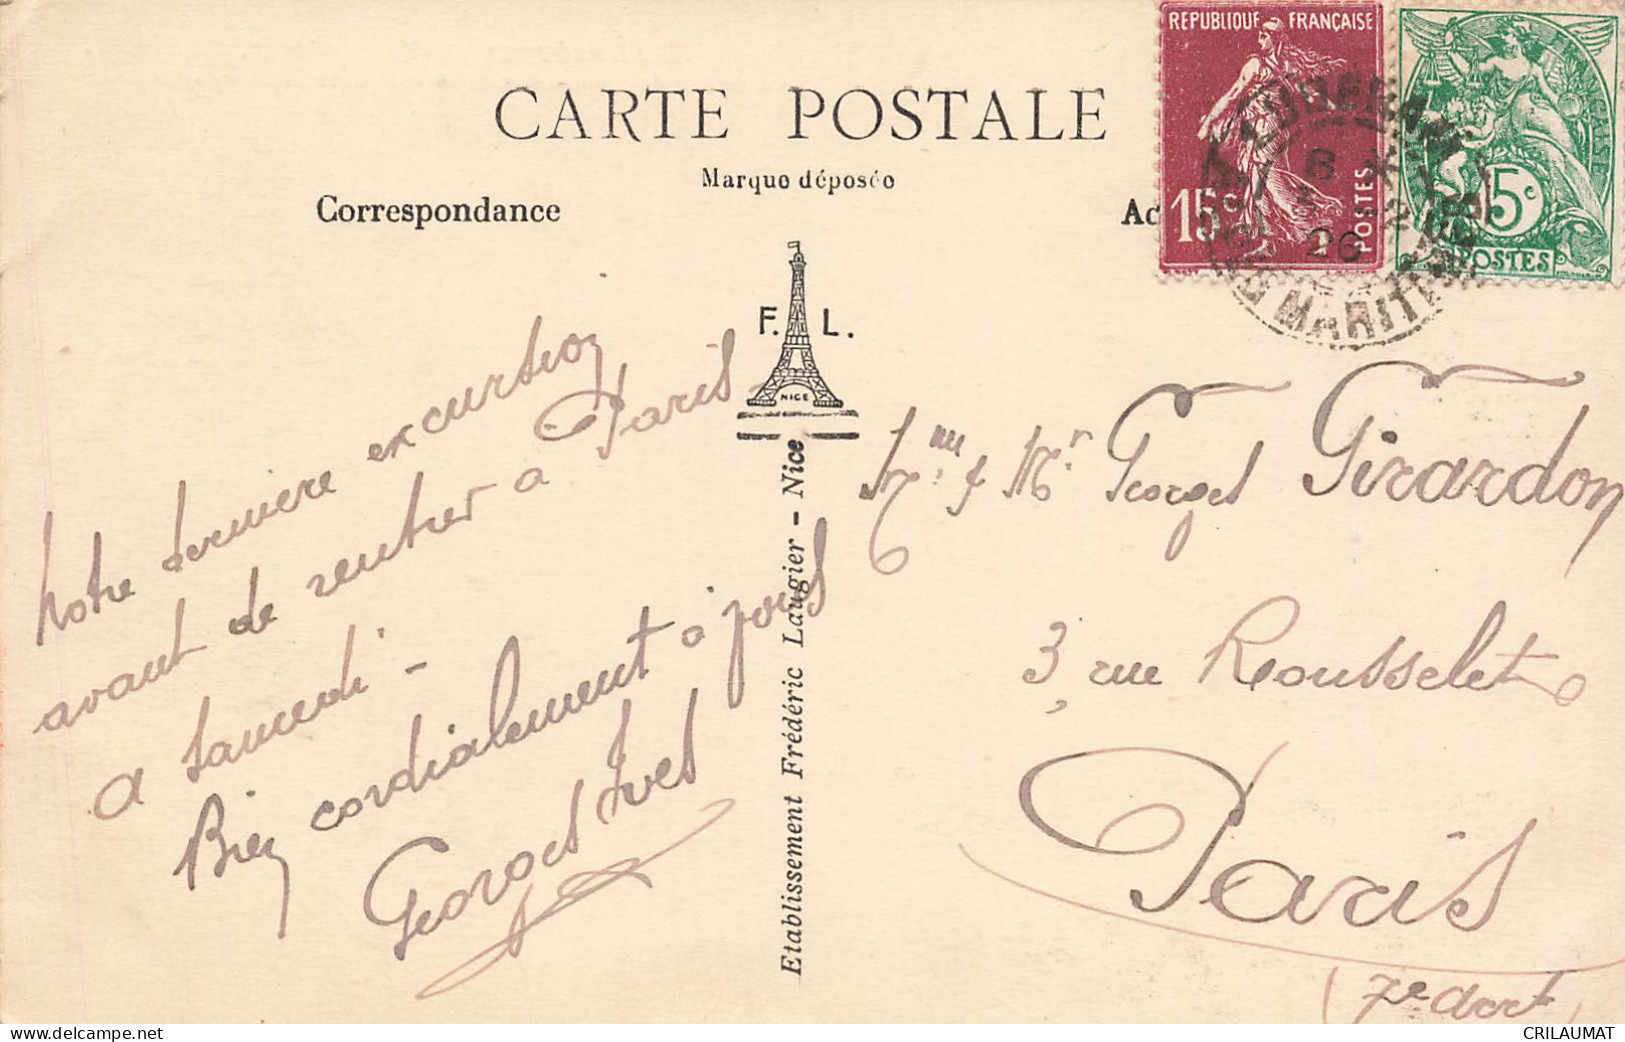 CARTE POSTALE
Marque déposée
Correspondance
REPUBLIQUE FRANÇAISE
15c
POSTES
5c
POSTES
8
26
MARITIMES
F. L.
NICE
Etablissement Frédéric Laugier - Nice
Notre derniere excursion
avant de rentrer a Paris
a samedi -
Bien cordialement à vous
Georges Yves
Mme & Mr Georges Girardon
3, rue Rousselet
Paris
(7e arrt
CRILAUMAT